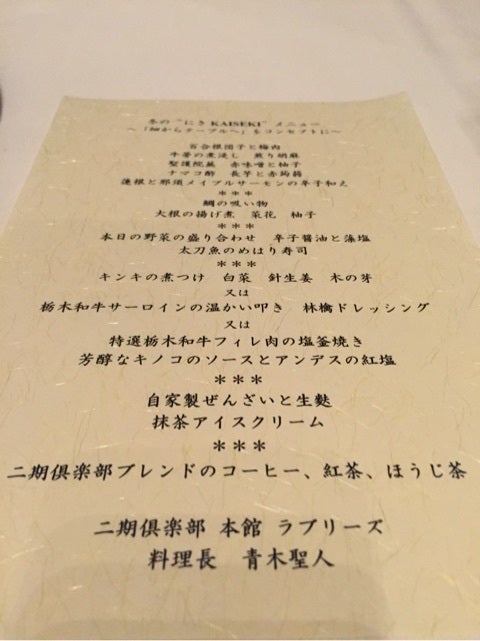 冬の "にき KAISEKI" メニュー
～「畑からテーブルへ」をコンセプトに～
百合根団子と梅肉
牛蒡の煮浸し 煎り胡麻
聖護院蕪 赤味噌と柚子
ナマコ酢 長芋と赤蒟蒻
蓮根と那須メイプルサーモンの辛子和え
＊＊＊
鯛の吸い物
大根の揚げ煮 菜花 柚子
＊＊＊
本日の野菜の盛り合わせ 辛子醤油と藻塩
太刀魚のめはり寿司
＊＊＊
キンキの煮つけ 白菜 針生姜 木の芽
又は
栃木和牛サーロインの温かい叩き 林檎ドレッシング
又は
特選栃木和牛フィレ肉の塩釜焼き
芳醇なキノコのソースとアンデスの紅塩
＊＊＊
自家製ぜんざいと生麩
抹茶アイスクリーム
＊＊＊
二期倶楽部ブレンドのコーヒー、紅茶、ほうじ茶
二期倶楽部 本館 ラブリーズ
料理長 青木聖人